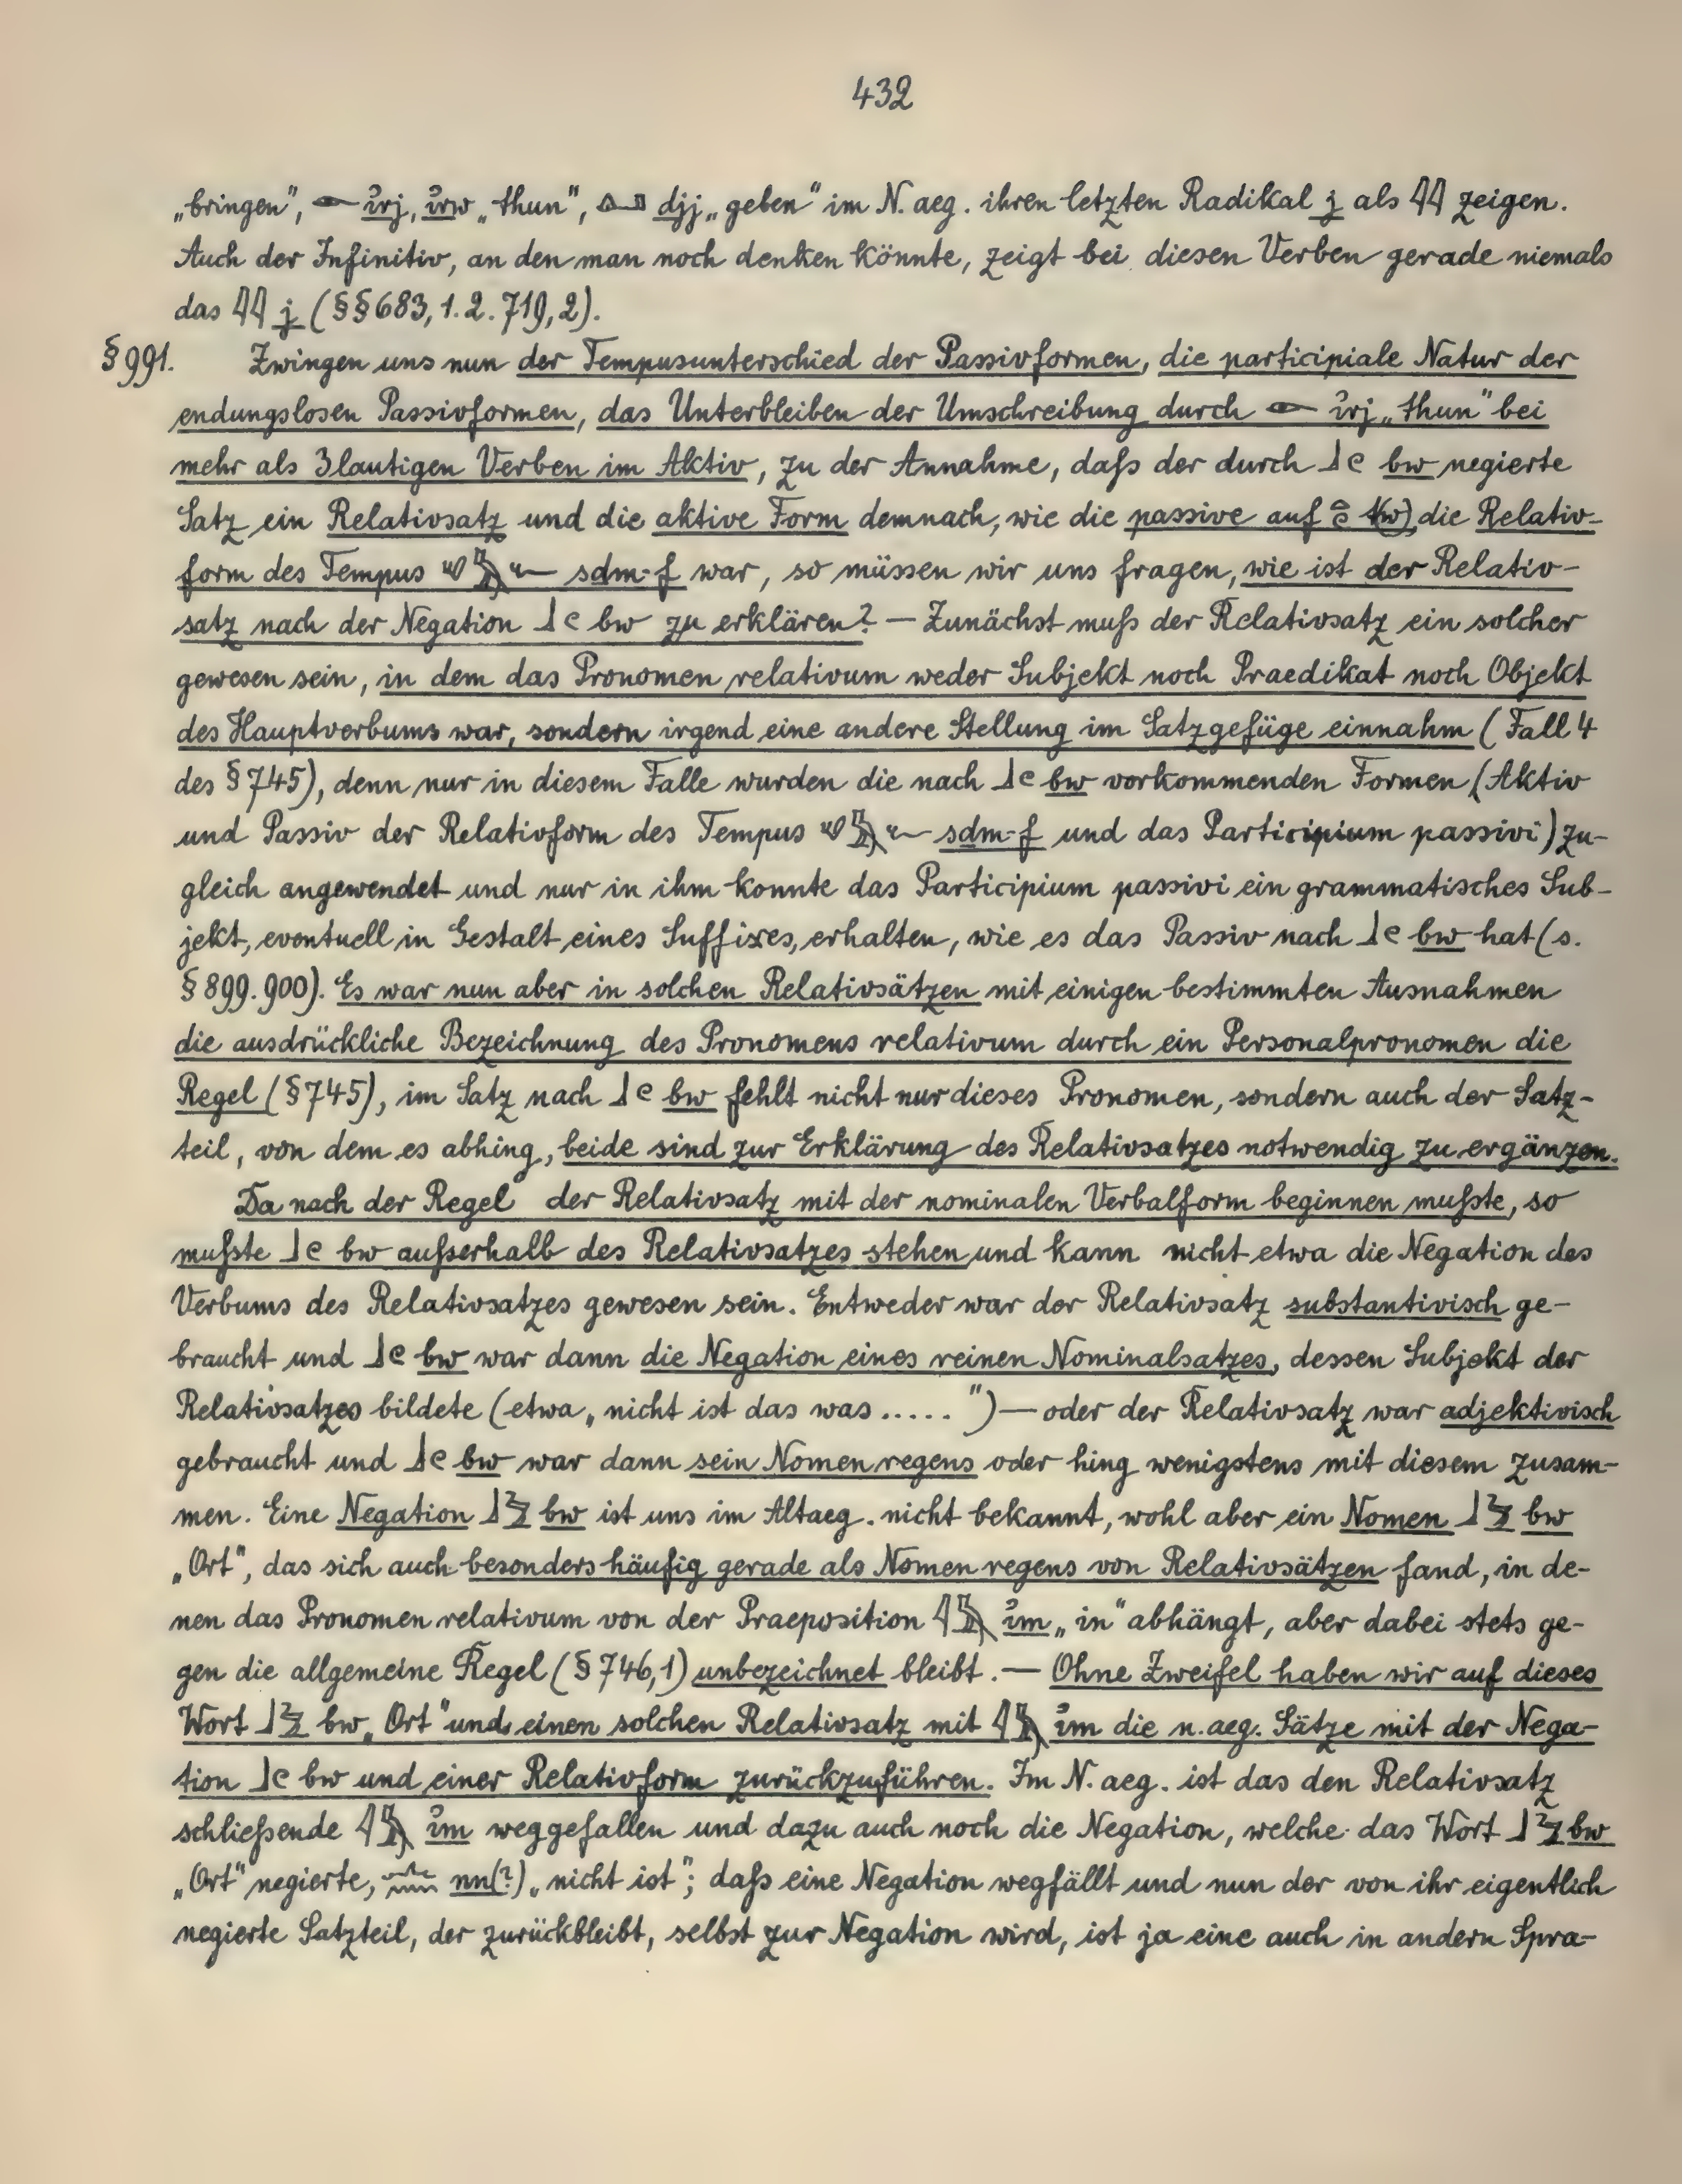 432
„bringen“, 𓁹 ı͗rj, ı͗rw „thun“, 𓂞 djj „geben“ im N. aeg. ihren letzten Radikal j als 𓇌 zeigen.
Auch der Infinitiv, an den man noch denken könnte, zeigt bei diesen Verben gerade niemals
das 𓇌 j (§§ 683, 1. 2. 719, 2).
§ 991. Zwingen uns nun der Tempusunterschied der Passivformen, die participiale Natur der
endungslosen Passivformen, das Unterbleiben der Umschreibung durch 𓁹 ı͗rj „thun“ bei
mehr als 3lautigen Verben im Aktiv, zu der Annahme, daß der durch 𓃀𓏲 bw negierte
Satz ein Relativsatz und die aktive Form demnach, wie die passive auf tw, die Relativ-
form des Tempus 𓄔𓅓𓆑 sdm-f war, so müssen wir uns fragen, wie ist der Relativ-
satz nach der Negation 𓃀𓏲 bw zu erklären? — Zunächst muß der Relativsatz ein solcher
gewesen sein, in dem das Pronomen relativum weder Subjekt noch Praedikat noch Objekt
des Hauptverbums war, sondern irgend eine andere Stellung im Satzgefüge einnahm (Fall 4
des § 745), denn nur in diesem Falle wurden die nach 𓃀𓏲 bw vorkommenden Formen (Aktiv
und Passiv der Relativform des Tempus 𓄔𓅓𓆑 sdm-f und das Participium passivi) zu-
gleich angewendet und nur in ihm konnte das Participium passivi ein grammatisches Sub-
jekt, eventuell in Gestalt eines Suffixes, erhalten, wie es das Passiv nach 𓃀𓏲 bw hat (s.
§ 899. 900). Es war nun aber in solchen Relativsätzen mit einigen bestimmten Ausnahmen
die ausdrückliche Bezeichnung des Pronomens relativum durch ein Personalpronomen die
Regel (§ 745), im Satz nach 𓃀𓏲 bw fehlt nicht nur dieses Pronomen, sondern auch der Satz-
teil, von dem es abhing, beide sind zur Erklärung des Relativsatzes notwendig zu ergänzen.
Da nach der Regel der Relativsatz mit der nominalen Verbalform beginnen mußte, so
mußte 𓃀𓏲 bw außerhalb des Relativsatzes stehen und kann nicht etwa die Negation des
Verbums des Relativsatzes gewesen sein. Entweder war der Relativsatz substantivisch ge-
braucht und 𓃀𓏲 bw war dann die Negation eines reinen Nominalsatzes, dessen Subjekt der
Relativsatzes bildete (etwa „nicht ist das was .....“) — oder der Relativsatz war adjektivisch
gebraucht und 𓃀𓏲 bw war dann sein Nomen regens oder hing wenigstens mit diesem zusam-
men. Eine Negation 𓃀𓅱 bw ist uns im Altaeg. nicht bekannt, wohl aber ein Nomen 𓃀𓅱 bw
„Ort“, das sich auch besonders häufig gerade als Nomen regens von Relativsätzen fand, in de-
nen das Pronomen relativum von der Praeposition 𓇋𓅓 ı͗m „in“ abhängt, aber dabei stets ge-
gen die allgemeine Regel (§ 746, 1) unbezeichnet bleibt. — Ohne Zweifel haben wir auf dieses
Wort 𓃀𓅱 bw „Ort“ und einen solchen Relativsatz mit 𓇋𓅓 ı͗m die n. aeg. Sätze mit der Nega-
tion 𓃀𓏲 bw und einer Relativform zurückzuführen. Im N. aeg. ist das den Relativsatz
schließende 𓇋𓅓 ı͗m weggefallen und dazu auch noch die Negation, welche das Wort 𓃀𓅱 bw
„Ort“ negierte, 𓂜𓈖 nn(?) „nicht ist“; daß eine Negation wegfällt und nun der von ihr eigentlich
negierte Satzteil, der zurückbleibt, selbst zur Negation wird, ist ja eine auch in andern Spra-